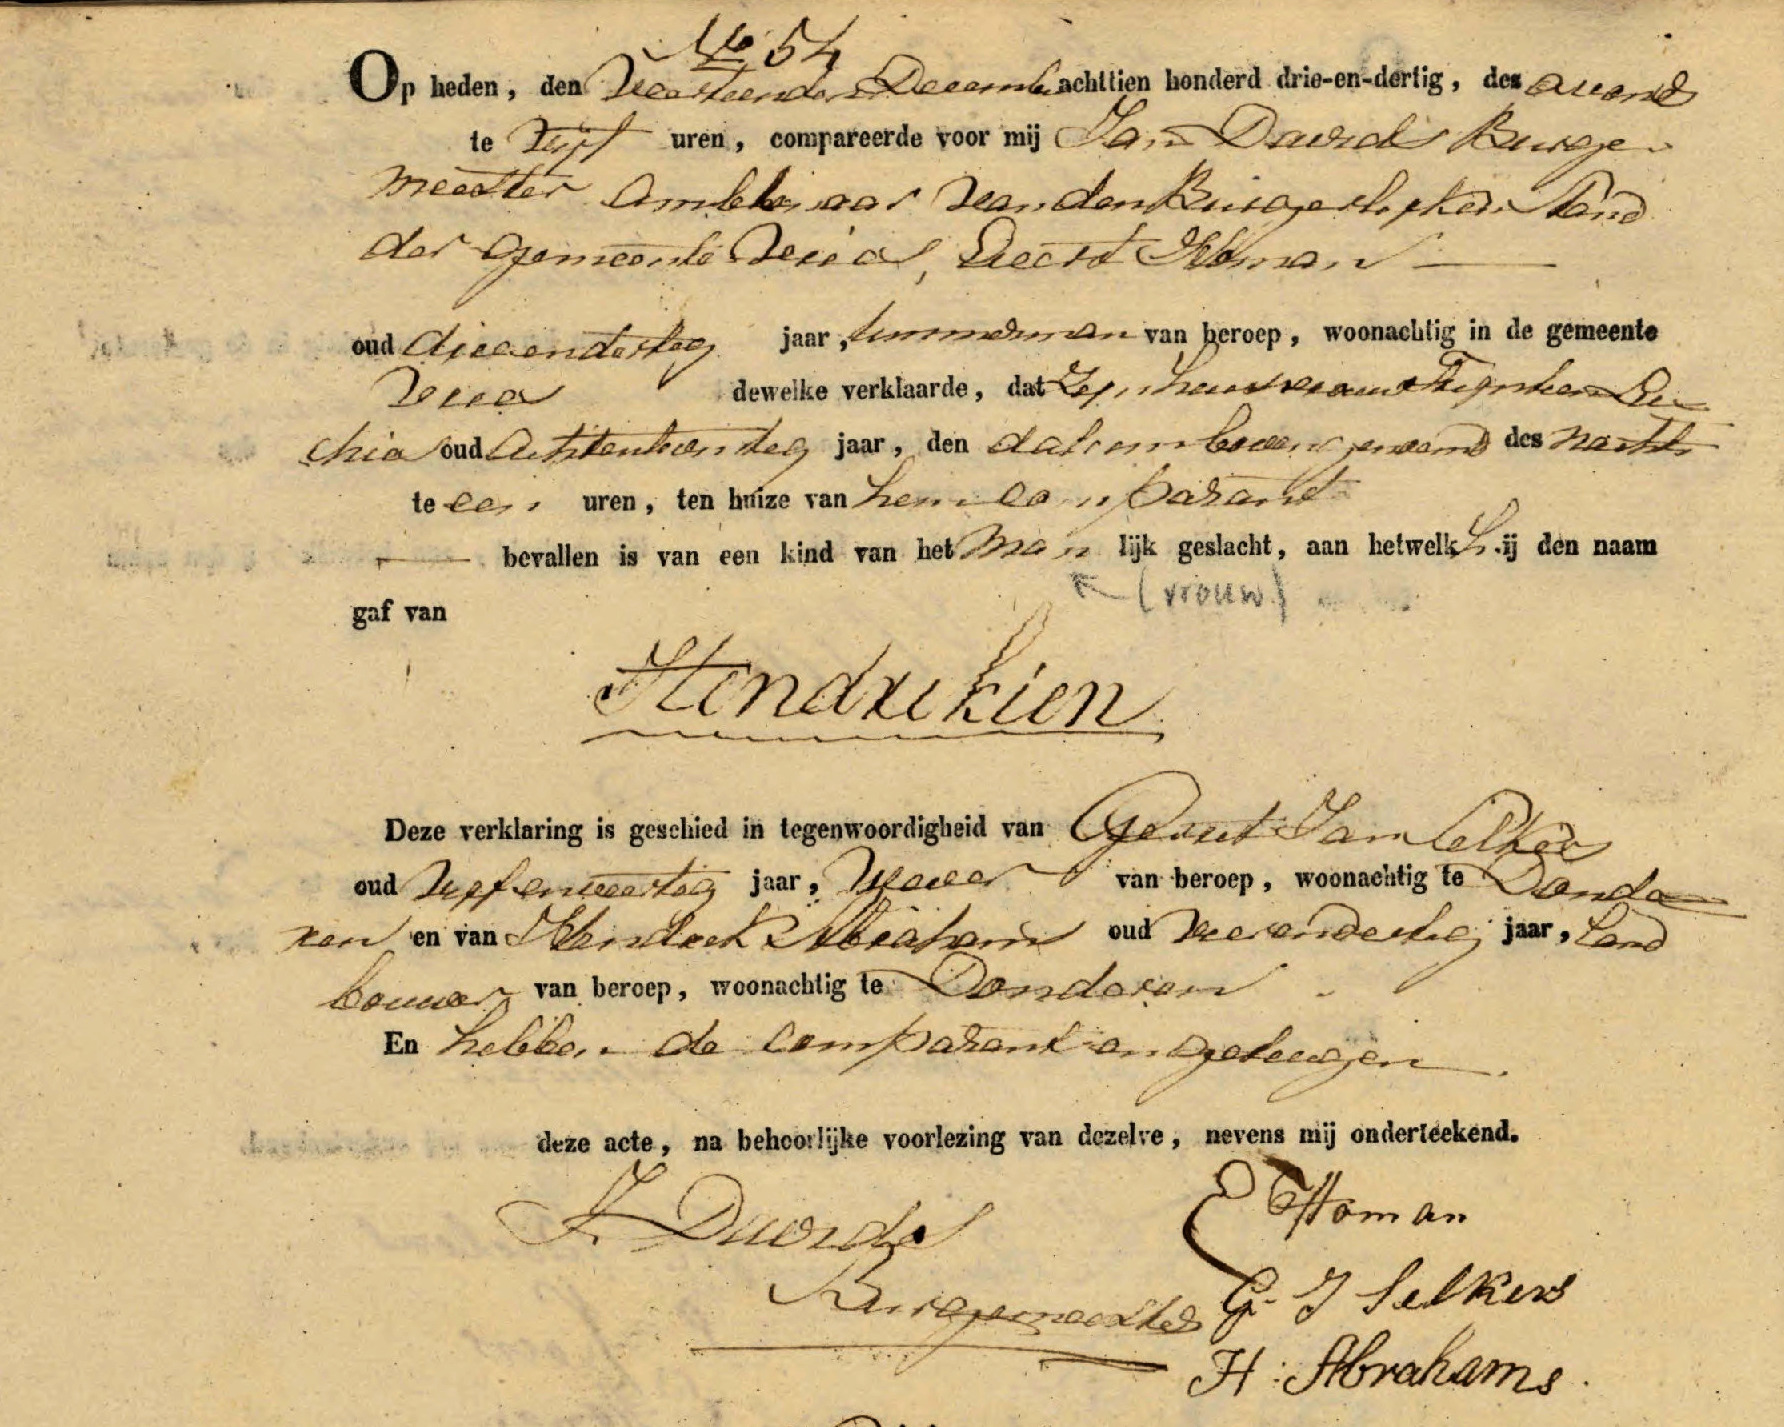 No 54
Op heden, den Veertienden Decemb achttien honderd drie-en-dertig, des avonds
te Vijf uren, compareerde voor mij Jan Davids Burge
meester Ambtenaar van den Burgerlijken Stand
der Gemeente Vries, Evert Homan
oud drieendertig jaar, timmerman van beroep, woonachtig in de gemeente
Vries dewelke verklaarde, dat Zijn huisvrouw Lu
chies oud Achtentwintig jaar, den datum bovengenoemd des nachts
te een uren, ten huize van hem comparant
bevallen is van een kind van het Man lijk geslacht, aan hetwelk h ij den naam
(vrouw)
gaf van
Hendrikien
Deze verklaring is geschied in tegenwoordigheid van Gerrit Jan Selkers
oud Vijfenveertig jaar, Wever van beroep, woonachtig te Donde
ren en van Hendrik Abrahams oud Vierendertig jaar, Land
bouwer van beroep, woonachtig te Donderen
En hebben de comparant en getuigen
deze acte, na behoorlijke voorlezing van dezelve, nevens mij onderteekend.
J Davids
Burgemeester
E Homan
G. J Selkers
H. Abrahams